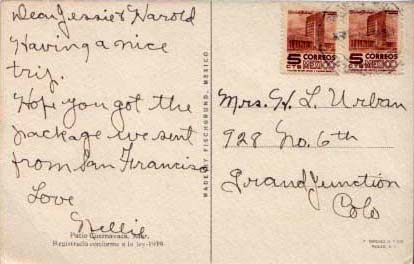 Dear Jessie & Harold
Having a nice
trip.
Hope you got the
package we sent
from San Francisco
Love
Nellie
Patio Cuernavaca, Mor.
Registrado conforme a la ley-1939.
MADE BY FISCHGRUND, MEXICO
5
CTS
CORREOS
MEXICO
5
CTS
CORREOS
MEXICO
Mrs. H. L. Urban
928 No. 6th
Grand Junction
Colo